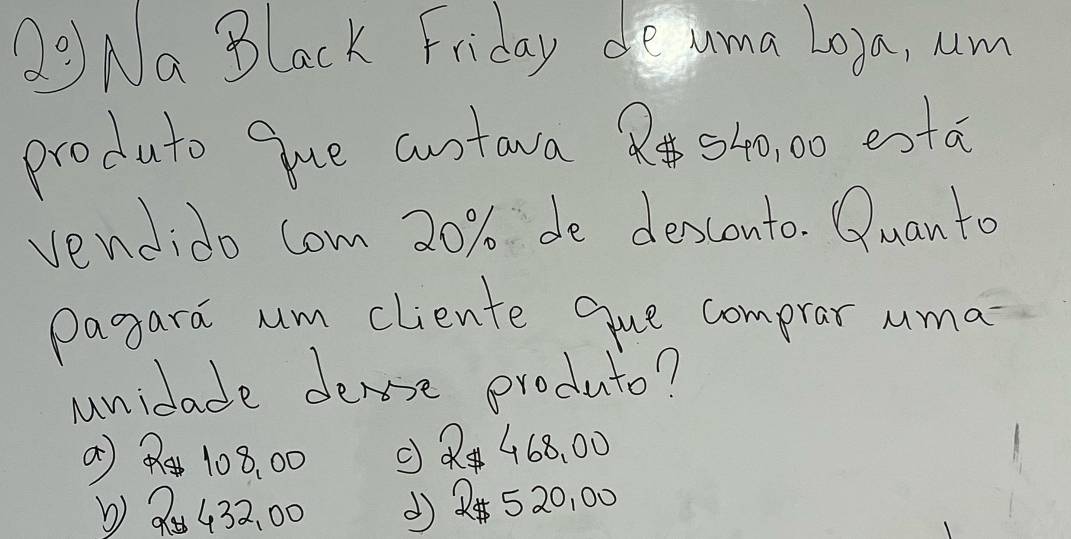 2º) Na Black Friday de uma Loja, um
produto que custava R$ 540,00 está
vendido com 20% de desconto. Quanto
pagará um cliente que comprar uma
unidade desse produto?
a) R$ 108,00 c) R$ 468,00
b) R$ 432,00 d) R$ 520,00